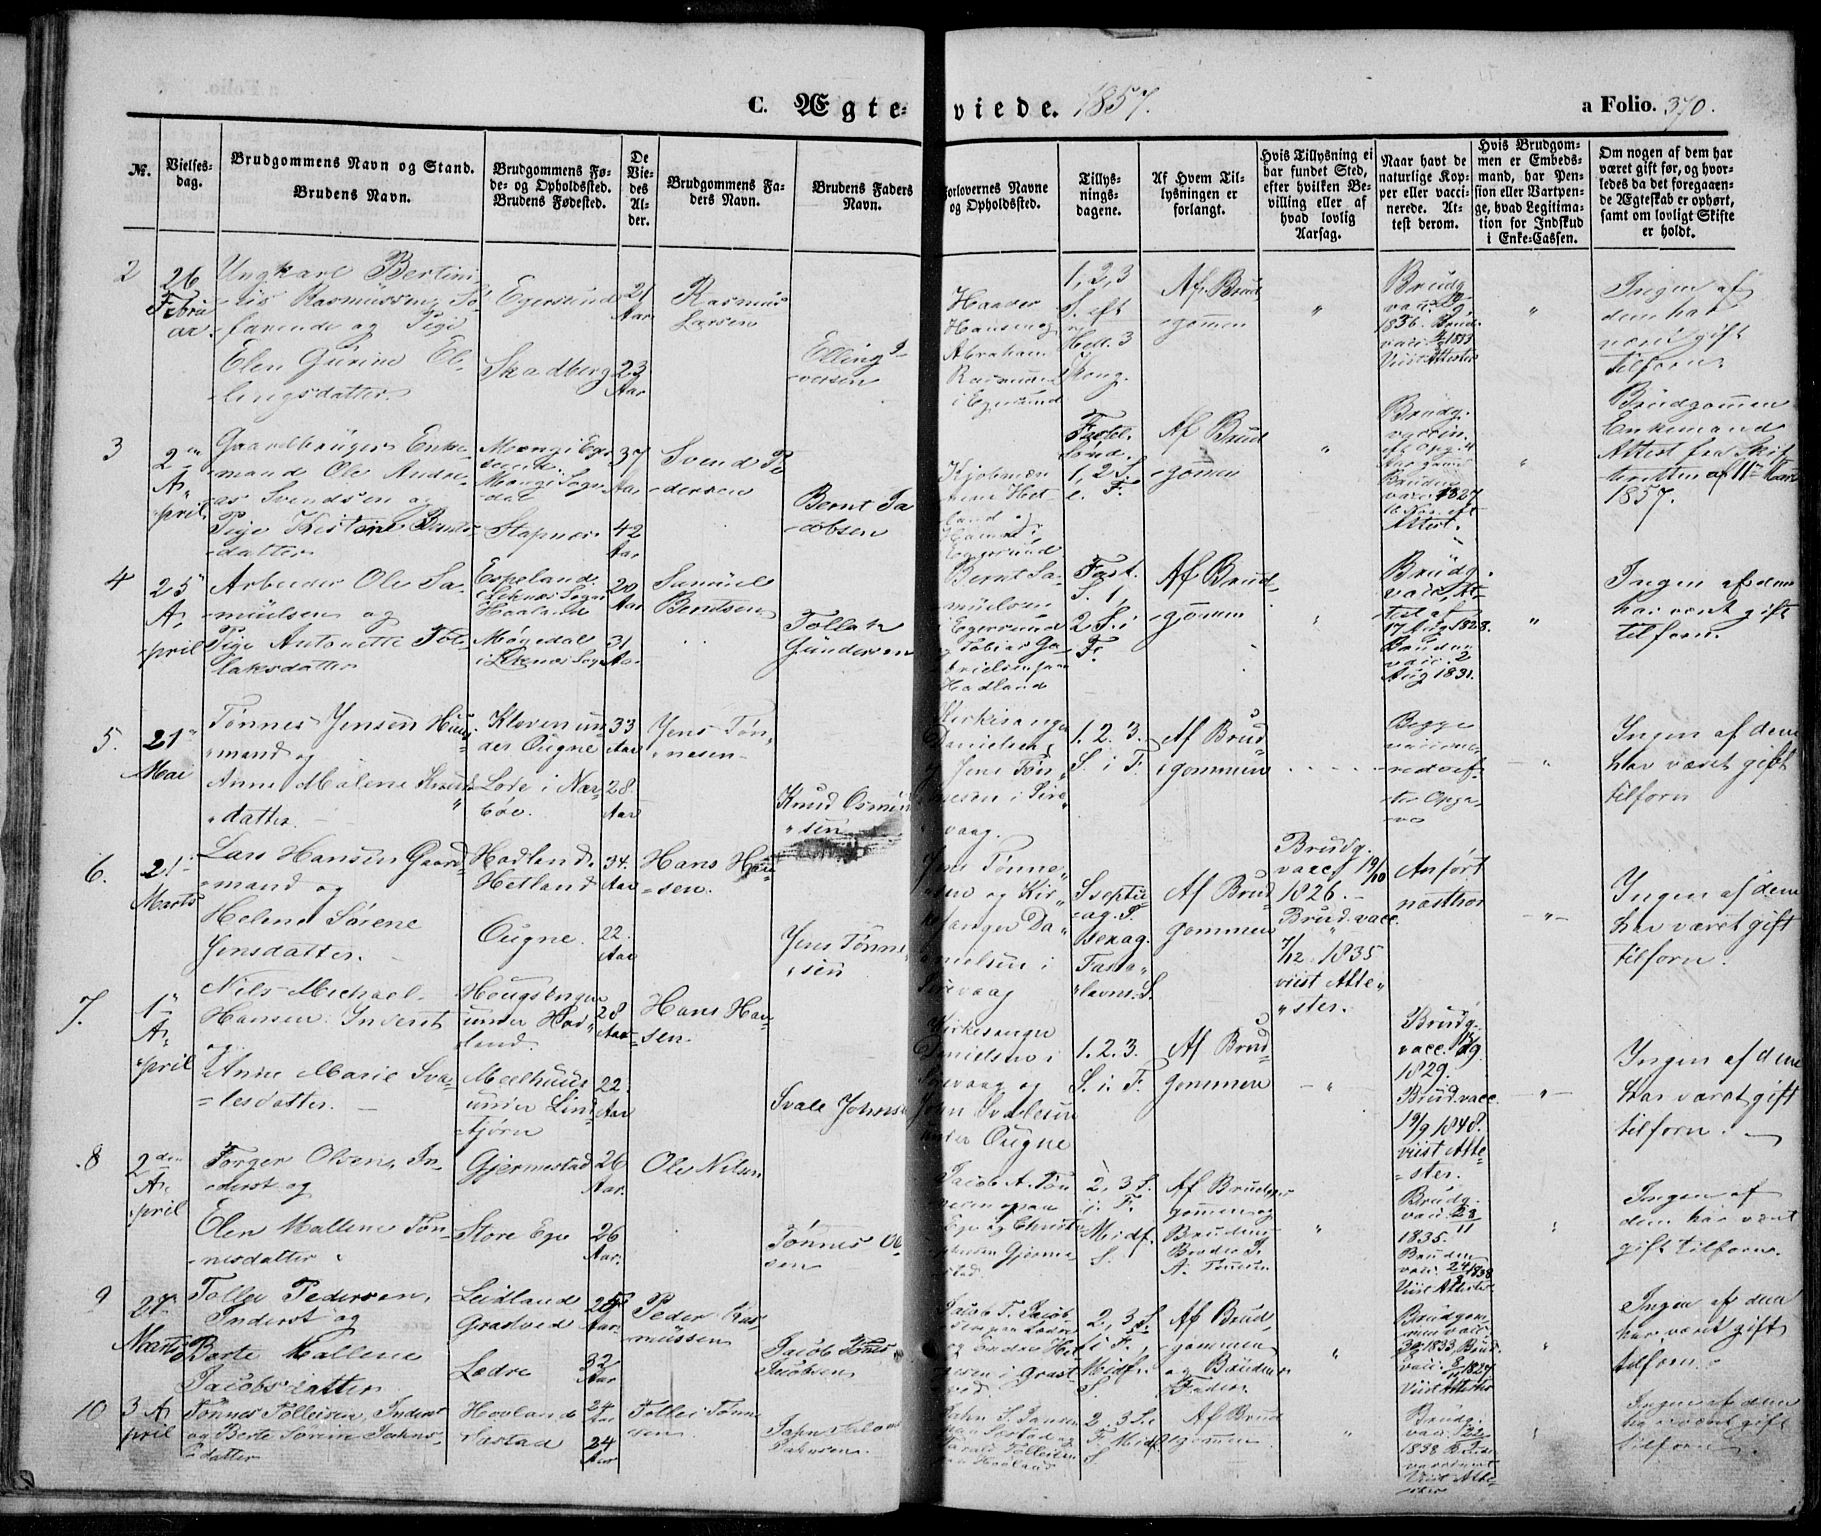 C. Ægte-viede. 1857.
a Folio. 370.
№.
Vielses-
dag.
Brudgommens Navn og Stand.
Brudens Navn.
Brudgommens Fø-
de- og Opholdssted.
Brudens Fødested.
De
Vie-
des
Al-
der.
Brudgommens Fa-
ders Navn.
Brudens Faders
Navn.
Forlovernes Navne
og Opholdssted.
Tillys-
nings-
dagene.
Af Hvem Til-
lysningen er
forlangt.
Hvis Tillysning ei
har fundet Sted,
efter hvilken Be-
villing eller af
hvad lovlig
Aarsag.
Naar havt de
naturlige Kop-
per eller vacci-
nerede. At-
test derom.
Hvis Brudgom-
men er Embeds-
mand, har Pen-
sion eller Vartpen-
ge, hvad Legitima-
tion for Indskud
i Enke-Cassen.
Om nogen af dem har
været gift før, og hvor-
ledes da det foregaaen-
de Ægteskab er ophørt,
samt om lovligt Skifte
er holdt.
2
26
Februa
ar.
Ungkarl Bertini
us Rasmussen, Sø-
farende og Pige
Elen Gurine El-
lingsdatter
Egersund
Skadberg
21
Aar
23
Aar
Rasmus
Larsen
Elling I-
versen
Haaver
Hansen og
Abraham
Rasmussen
i Egersund
1, 2, 3
S. eft
Hell. 3
Kong.
Af Brud
gomen
"
Brudg.
vacc.
1836. Brud.
vacc. 1833
Viist Attester
"
Ingen af
dem har
været gift
tilforn.
3
2en
A-
pril.
Gaardbruger Enke-
mand Ole Andre-
as Svendsen og
Pige Kistene Bernts-
datter
Sogn-
dal
Stapnæs
37
Aar
42
Aar
Svend Pe
dersen
Bernt Ja
cobsen
land og
Egersund
Fastel.
Sønd.
1, 2, S.
i F.
Af Brud
gomen
"
Brudg.
vaccin.
Bruden
vacc. 1827
16 Nov. eft
Attest.
"
Brudgommen
Enkemand
Attest fra Skif-
teretten af 11te Marts
1857.
4
25
A-
pril
Arbeider Ole Sa-
muelsen og
Pige Antonette Tol-
laksdatter
Espeland
Sogn
Haaland
Møgedal
Sogn
20
Aar
31
Aar
Samuel
Berntsen
Tollak
Gundersen
Bernt Sa-
muelsen
i Egersund
og Tobias Ga-
brielsen paa
Hadland
Fast.
S. 1,
2 S. i
F.
Af Brud-
gomen
"
Brudg.
vacc. At-
test af
17 Aug 1828.
Bruden
vacc. 2
Aug 1831.
"
Ingen af dem
har været gift
tilforn.
5.
21
Mai
Tønnes Jensen Huus-
mand og
Anne Malene Knuds-
datter.
Kloven un-
der Ougne
Lode i Nær-
bøe.
33
Aar
28.
Aar
Jens Tøn-
nesen
Knud Osmun
sen
Kirkesanger
Danielsen
og Jens Tøn-
nesen i Sire-
vaag.
1. 2. 3.
S. i F.
Af Brud-
gommen
Begge
vaccine-
red ef-
ter Opga-
ve
"
Ingen af dem
har været gift
tilforn
6.
21
Marts
Lars Hansen Gaard-
mand og
Helene Sørene
Jensdatter.
Hadland.
Hetland
Ougne.
34.
Aar
22.
Aar
Hans Han-
sen.
Jens Tønne-
sen
Jens Tønne-
sen og Kir-
kesanger Da-
nielsen i
Sirevaag
Septu-
ag. S.
Sexag.
Faste-
lavns. S.
Af Brud-
gommen
Brudg.
vacc. 19/10
1826.
Brud. vacc.
7/12 1835
viist Atte-
ster.
Anført
næsthos
"
Ingen af dem
har været gift
tilforn.
7.
1
A-
pril
Nils Michael
Hansen Inderst
og
Anne Marie Sva-
lesdatter.
Hougsengen
under Had-
land.
Meelhuus
under Lin
tjørn
28
Aar
22.
Aar
Hans Han-
sen.
Svale Johns
Kirkesanger
Danielsen i
Sirevaag og
John Svalesen
under Ougne
1. 2. 3.
S. i. F.
Af Brud-
gommen
"
Brudg.
vacc.
1829.
Brud. vacc.
19/9 1848.
viist Atte-
ster.
"
Ingen af dem
har været gift
tilforn.
8
2den
A-
pril
Torger Olsen, In-
derst og
Elen Mallene Tøn-
nesdatter
Gjermestad
Store Ege
26
Aar.
26
Aar.
Ole Nilsen
Tønnes Ol
sen
Jacob A. Tøn
nesen paa
Ege og Christ
Gjerme
stad.
2, 3 S.
i. F.
Midf.
S.
Af Brudgo
gomen og
Brudens
Broder J.
A. Tønnesen
"
Brudg.
vacc. 23
11
1835.
Bruden
vacc. 24 1838
Viist Attester
"
Ingen af
dem har været
gift tilforn.
9
27
Marts
Tollei Pedersen,
Inderst og
Berte Mallene
Jacobsdatter
Leidland
Grastved
Lædre
25
Aar.
32
Aar
Peder Ras-
mussen
Jacob Tønnes
Jacobsen
Jacob T. Jacob
og Endre
Grast
ved
2, 3, S.
i F.
Midf.
S.
Af Brud-
gommen
og Brudens
Fader
"
Brudgom-
men vacc.
1833 Brud.
vacc. 1827
Viist Attester
"
Ingen af dem
har været gift
tilforn.
10
3 A-
pril
Tønnes Tolleisen, Inderst
og Berte Serine Jahns-
datter
Hovland
Søstad
24
Aar
24
Aar
Tollei Tønne
sen
Jahn Salamon
Jahnsen.
Jahn S. Jansen
paa Søstad og
Tolleisen
paa Hovland
2, 3 S. i
F. Midf.
S
Af Brud
gommen
"
Brudg.
vacc. 22
1838 Brud
Viist Atte-
ster
"
Ingen af dem
har været gift
tilforn.